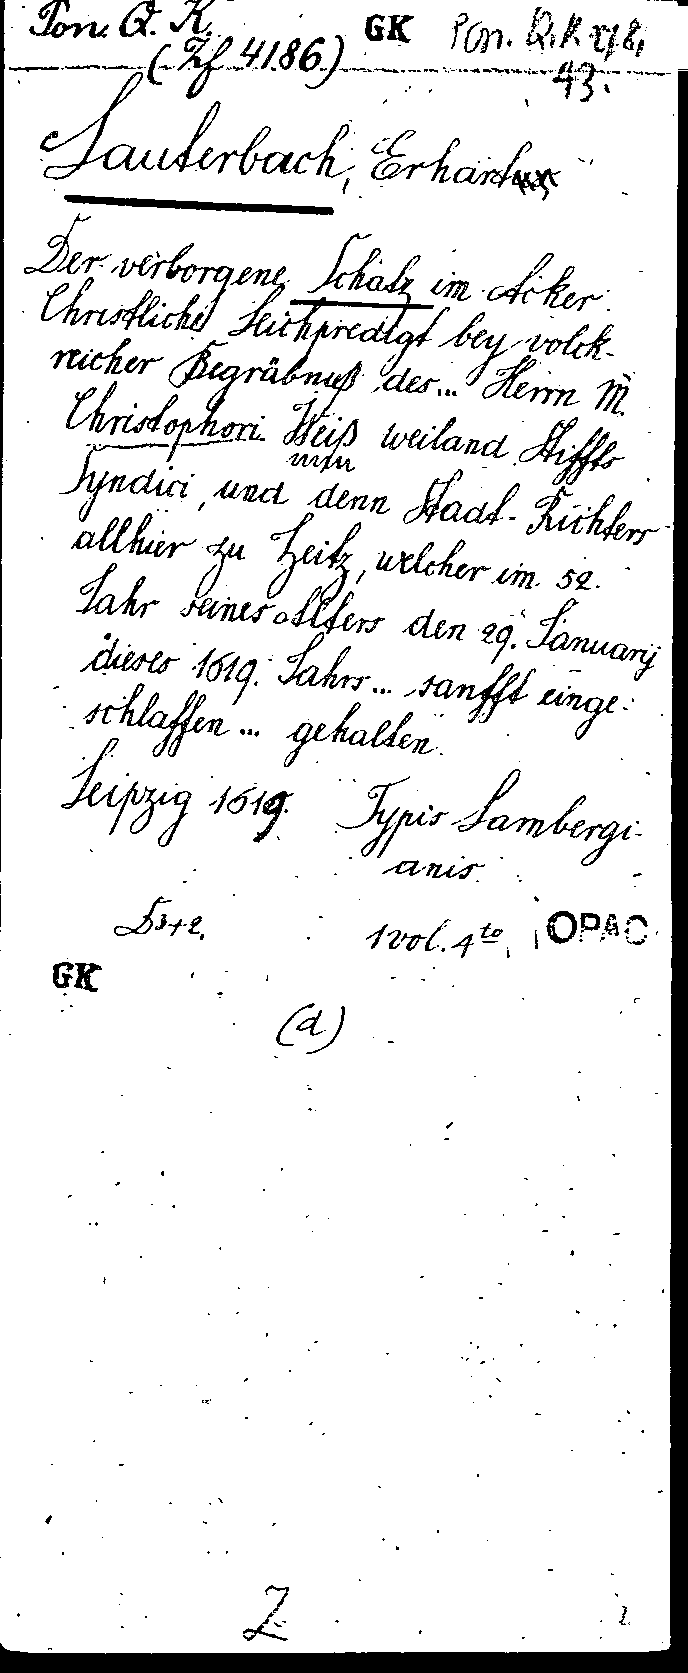 Pon. Q. K. GK Pon. Q. K. 278,
(Zf 4186.) 43.
Lauterbach, Erhart
Der verborgene Schatz im Acker.
Christliche Leichpredigt bey volck-
reicher Begräbnuß des... Herrn M.
Christophori Weiß weiland Stiffts
Syndici, und denn Stadt-Richters
allhier zu Zeitz, welcher im 52.
Jahr seines Alters den 29. January
dieses 1619. Jahrs... sanfft einge-
schlaffen... gehalten.
Leipzig 1619. Typis Lambergi-
anis.
1 vol. 4to, OPAC
GK
(d)
Z